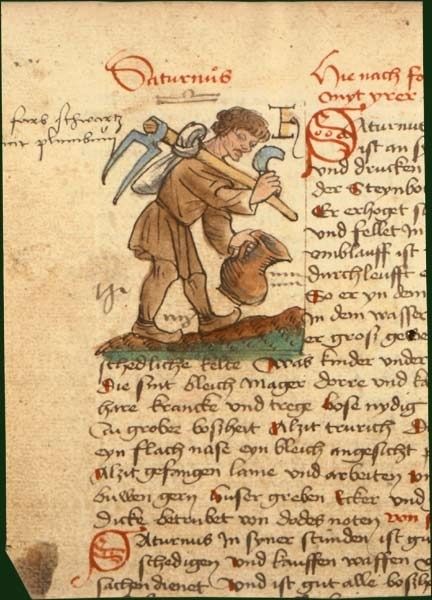 Saturnus
Hie nach fo
myt yrer
farb schwartz
plumbum
Saturnus
ist an sy
und drucken
der Steynbo
Er erhoget s
und fellet In
umblauff ist
durchleufft e
So er yn dem
In dem wasser
er groß ge
schedliche kelte Was kinder under
Die sint bleich Mager dorre und ka
hare krancke und trege bose nydig
Zu grober boßheit Alzit trurich
eyn flach nase eyn bleich angesicht
Alzit gefangen lame und arbeiten
buwen gern huser greben Ecker und
dicke betrubet von dodes noten von
Saturnus In syner stunden ist gut
schedigen und kauffen waffen
sachen dienet Und ist gut alle boßhe